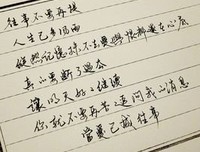 往事不要再提
人生已多风雨
纵然记忆抹不去爱与恨都还在心底
真的要断了过去
让明天好好继续
你就不要再苦苦追问我的消息
曾爱已成往事